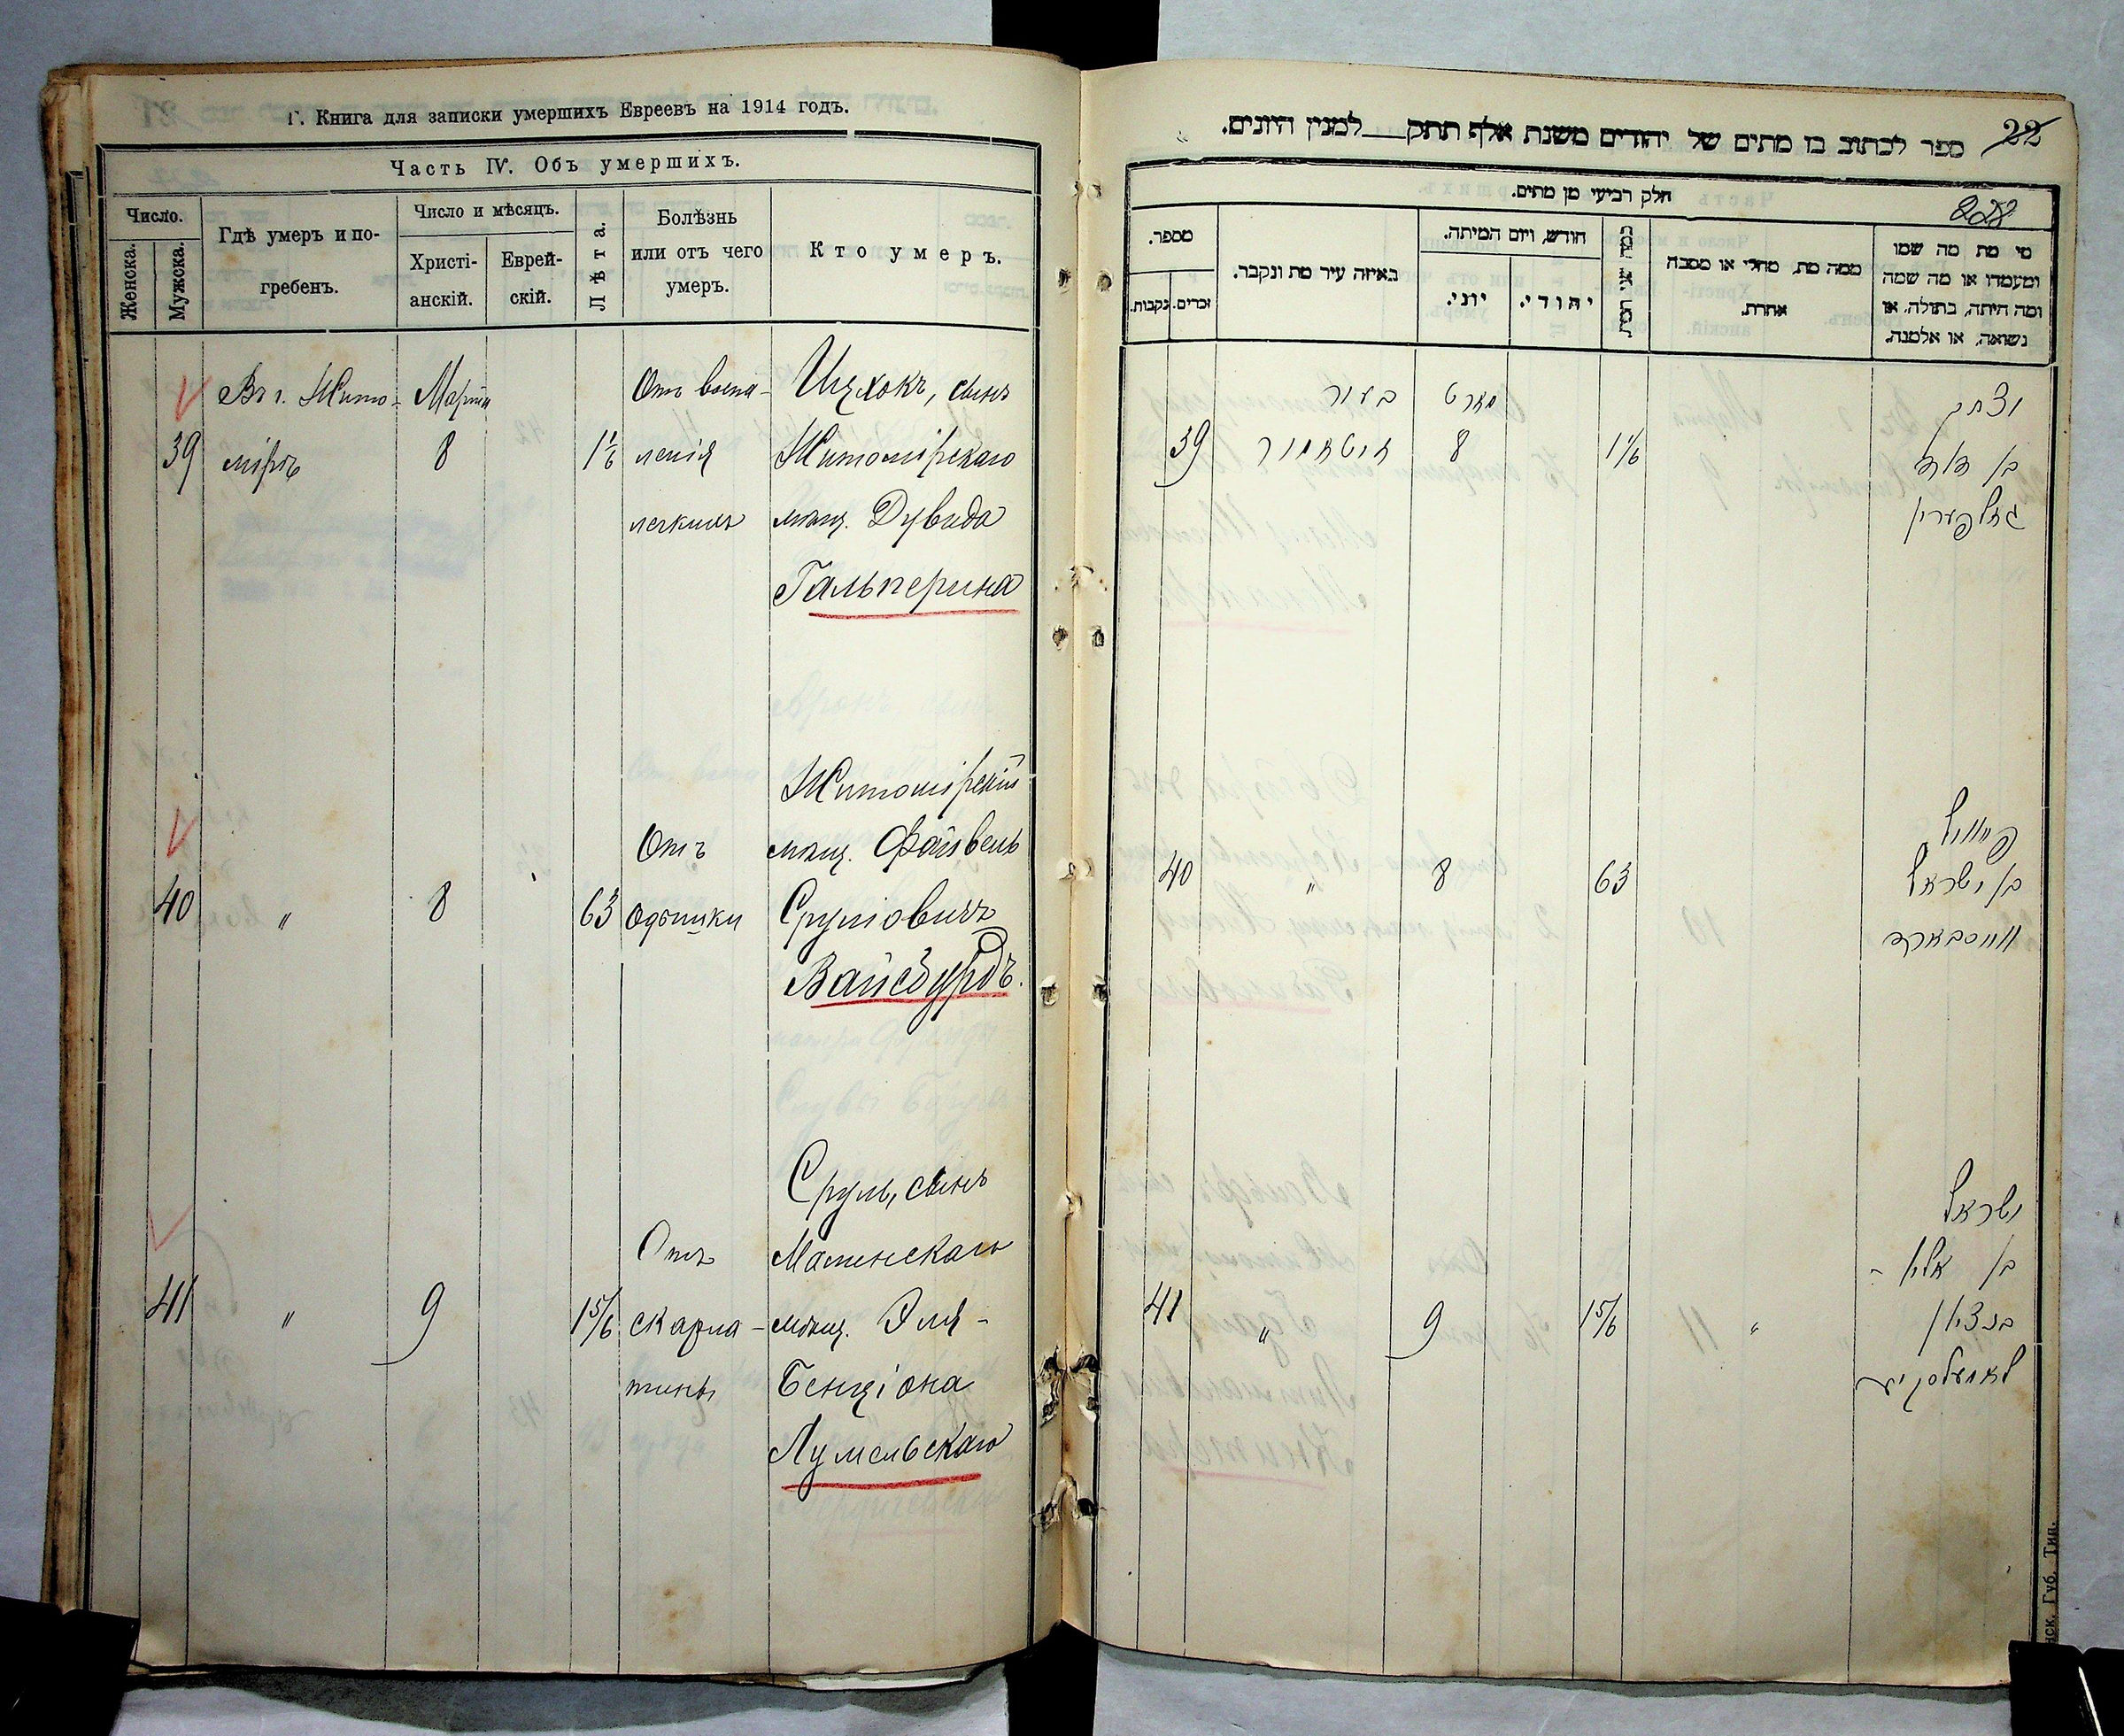 Г. Книга для записки умершихъ Евреевъ на 1914 годъ.
Часть IV. Объ умершихъ.
Число.
Женска.
Мужска.
Гдѣ умеръ и по-
гребенъ.
Число и мѣсяцъ.
Христі-
анскій.
Еврей-
скій.
Лѣта.
Болѣзнь
или отъ чего
умеръ.
Кто умеръ.
Въ г. Жито- Марта Отъ воспа- Ицхокъ, сынъ
39 мірѣ 8 1 1/6 ленія Житомірскаго
легкихъ мѣщ. Дувида
Гальперина
Житомірскій
Отъ мѣщ. Файвель
40 " 8 63 одышки Сруліовичъ
Вайсбурдъ.
Сруль, сынъ
Отъ Малинскаго
41 " 9 1 5/6 скарла- мѣщ. Эля-
тины Бенціона
Лумельскаго
22
ספר לכתוב בו מתים של יהודים משנת אלף תתק למנין היונים.
חלק רביעי מן מתים.
228
מספר.
נקבות.
זכרים.
באיזה עיר מת ונקבר.
חודש, ויום המיתה.
יוני.
יהודי.
ממה מת, מחלי או מסבה
אחרת.
מי מת מה שמו
ומעמדו או מה שמה
ומה היתה, בתולה, או
נשואה, או אלמנה.
בעיר מארט יצחק
39 זיטאמיר 8 1 1/6 בן דוד
גאלפערין
פייוויל
40 " 8 63 בן ישראל
ווייסבארד
ישראל
בן אלי' -
41 " 9 1 5/6 " בנציון
Губ. Тип.